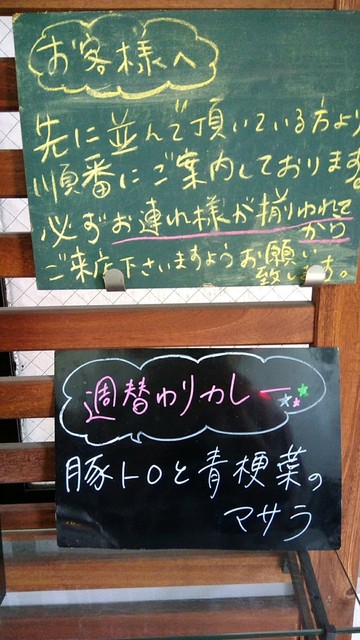 お客様へ
先に並んで頂いている方より
順番にご案内しております
必ずお連れ様が揃われて
から
ご来店下さいますようお願い
致します。
週替わりカレー
豚トロと青梗菜の
マサラ